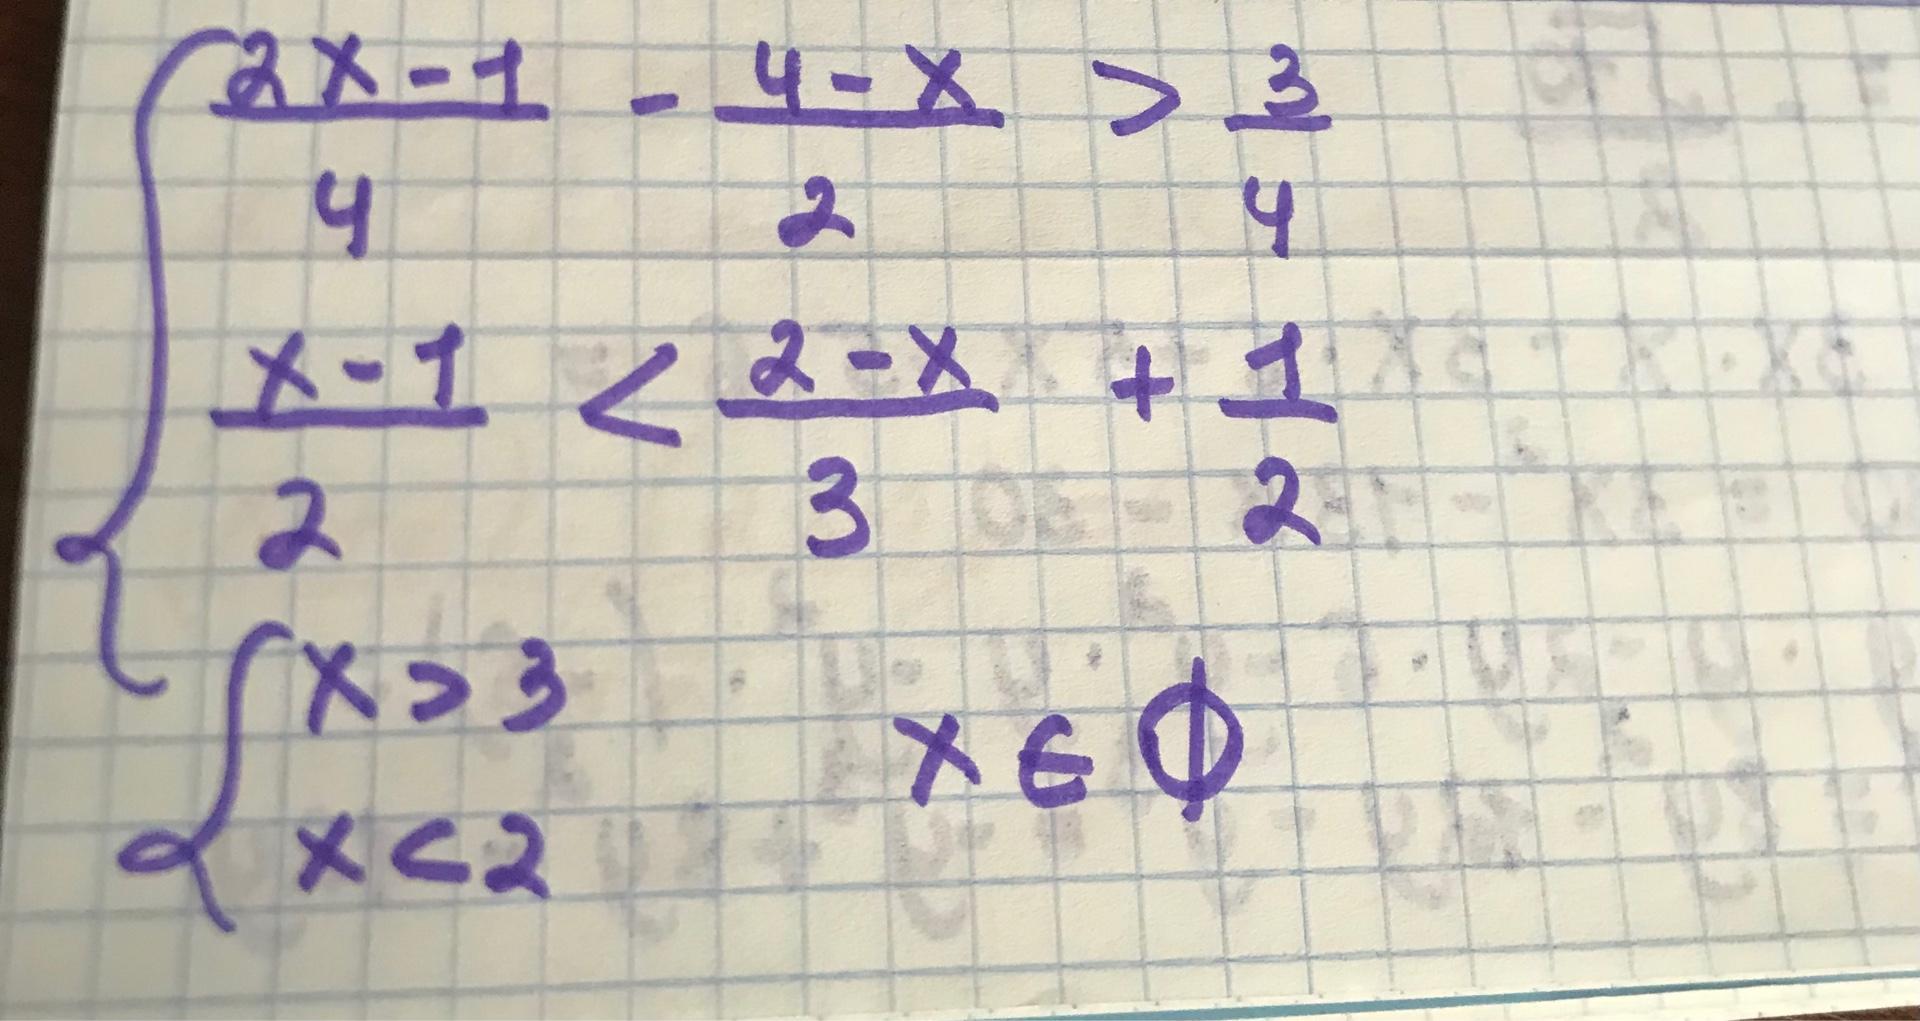 (2x-1)/4 - (4-x)/2 > 3/4
(x-1)/2 < (2-x)/3 + 1/2
x > 3
x < 2
x ∈ ∅